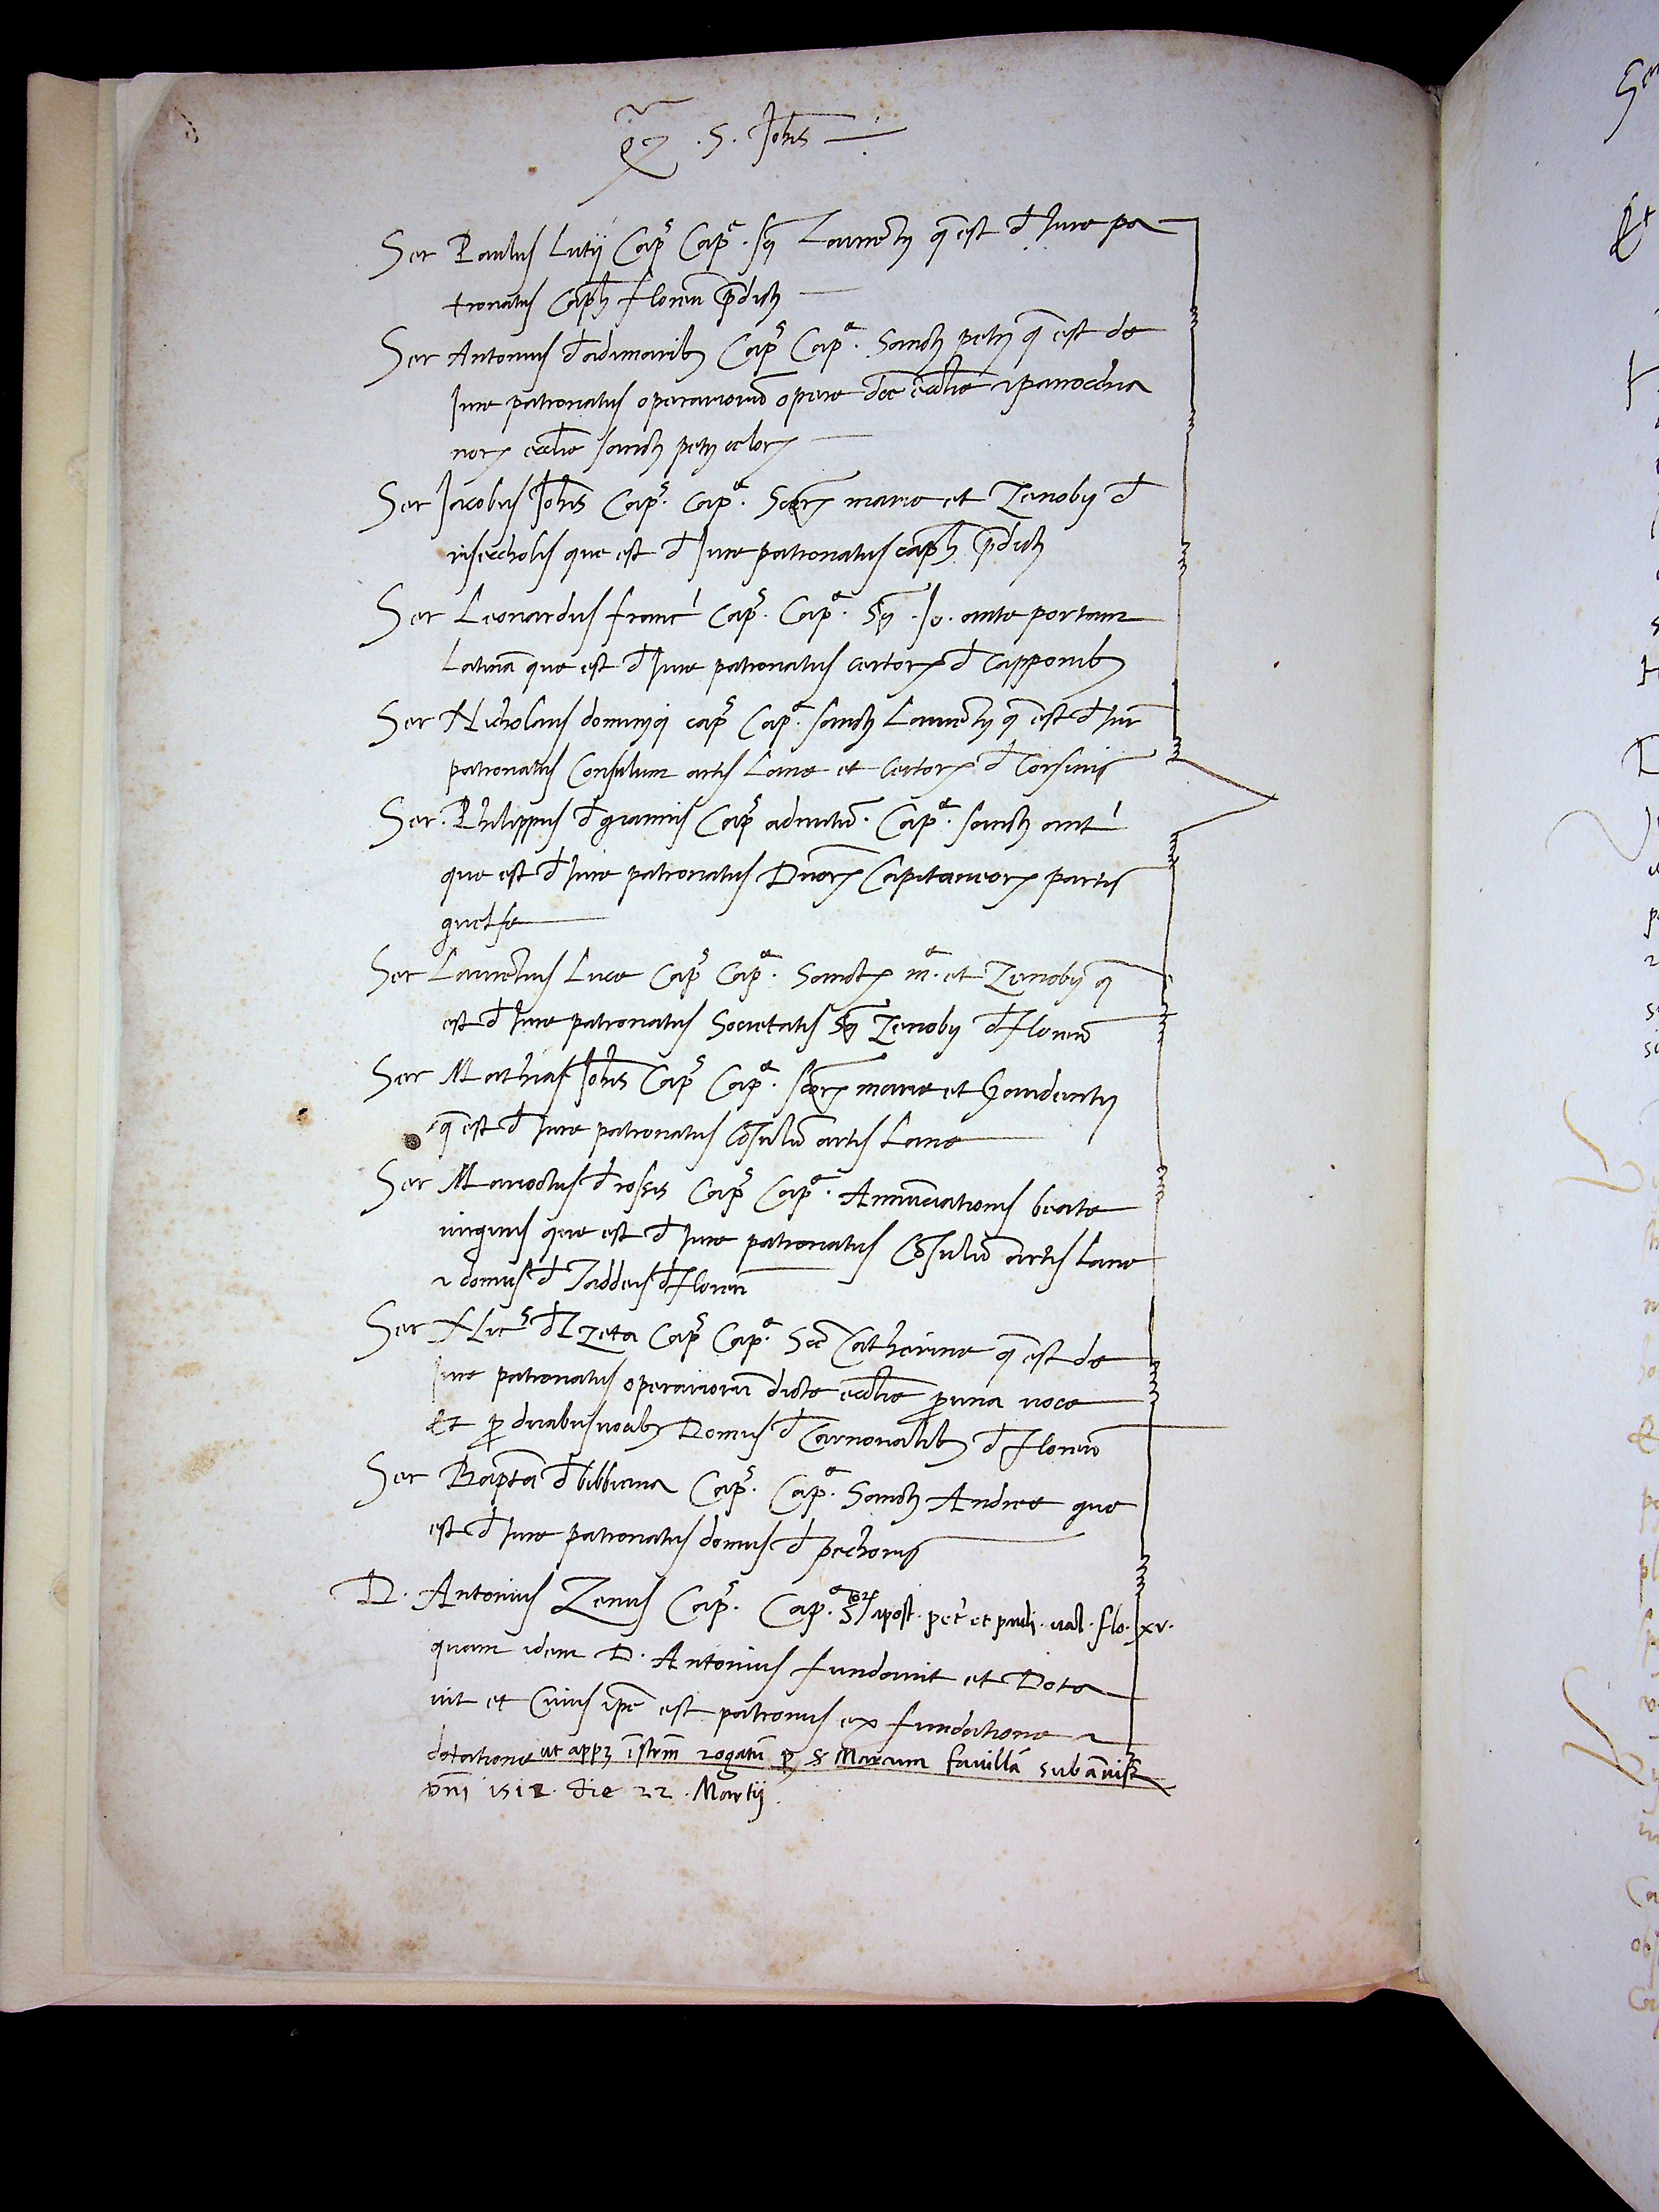 .S. Johis
Ser Paulus Lutij Caps Cape. Sci Laurentij q est d Jure pa
tronatus Capli floren pdicti
Ser Antonius d adimarib Caps Cape. Sancti petri q est de
Jure patronatus operariorum opere doe ecclie 7 parrochia
norz ecclie sancti petri celorz
Ser Jacobus Johis Caps. cape. Sctorz marie et Zenobij d
que est d Jure patronatus capli pdicti
Ser Leonardus franci Caps. Cape. Sci .Jo. ante portam
Latinā que est d Jure patronatus certorz d Capponib
Ser Nicholaus dominici caps Cape. sancti Laurentij q est d Jure
patronatus Consulum artis Lane et certorz d Corsinis
Ser. Philippus d Caps Cape. sancti anti
que est d Jure patronatus Dnorz Capitaneorz partis
guelfe
Ser Laurentius Luce Caps Cape. Sanctorz me. et Zenobij q
est d Jure patronatus Societatis Sci Zenobij d Floren
Ser Mathias Johis Caps Cape. sctorz marie et Gaudentij
q est d Jure patronatus Cōsulū artis Lane
Ser Mariottus d rossis Caps Cape. Annunciationis beate
uirginis que est d Jure patronatus Cōsulū artis Lane
7 domus d Taddeis d Floren
Ser Caps Cape. Sce Catherine q est de
Jure patronatus operariorū dicte ecclie p una uoce
Et p duabus uocib Domus d Carnoualib d Floren
Ser Baptā d bibbiena Caps. Cape. Sancti Andree que
est d Jure patronatus domus d pechoris
D. Antonius Zenus Caps. Cape. Storz apost. petri et pauli. ual. flo. xv.
quam idem D. Antonius fundauit et Dota
uit et Cuius ipe est patronus ex fundatione 7
dotatione ut appz istrm rogatū p s Marcum fauillā sub annis
Dni 1512. die 22. Martij.